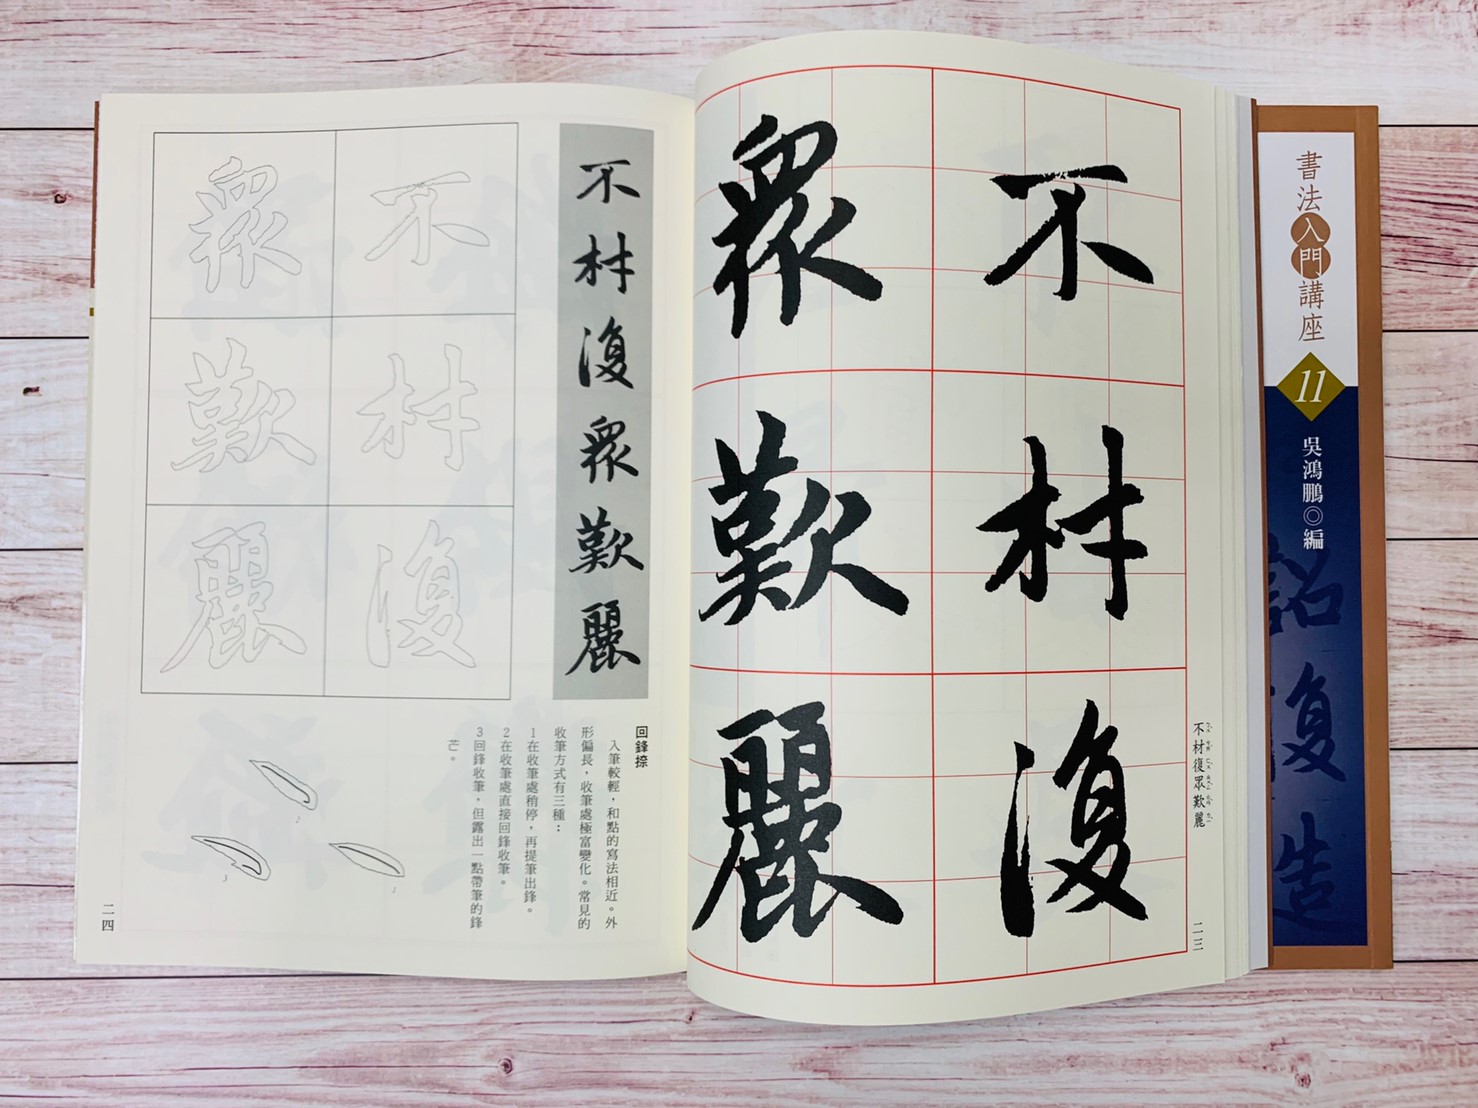 書法入門講座
11
吳鴻鵬◎編
詔
復
造
不材復眾歎麗
不材復
眾歎麗
二三
不材復眾歎麗
不材復
眾歎麗
回鋒捺
入筆較輕，和點的寫法相近。外
形偏長，收筆處極富變化。常見的
收筆方式有三種：
1在收筆處稍停，再提筆出鋒。
2在收筆處直接回鋒收筆。
3回鋒收筆，但露出一點帶筆的鋒
芒。
二四